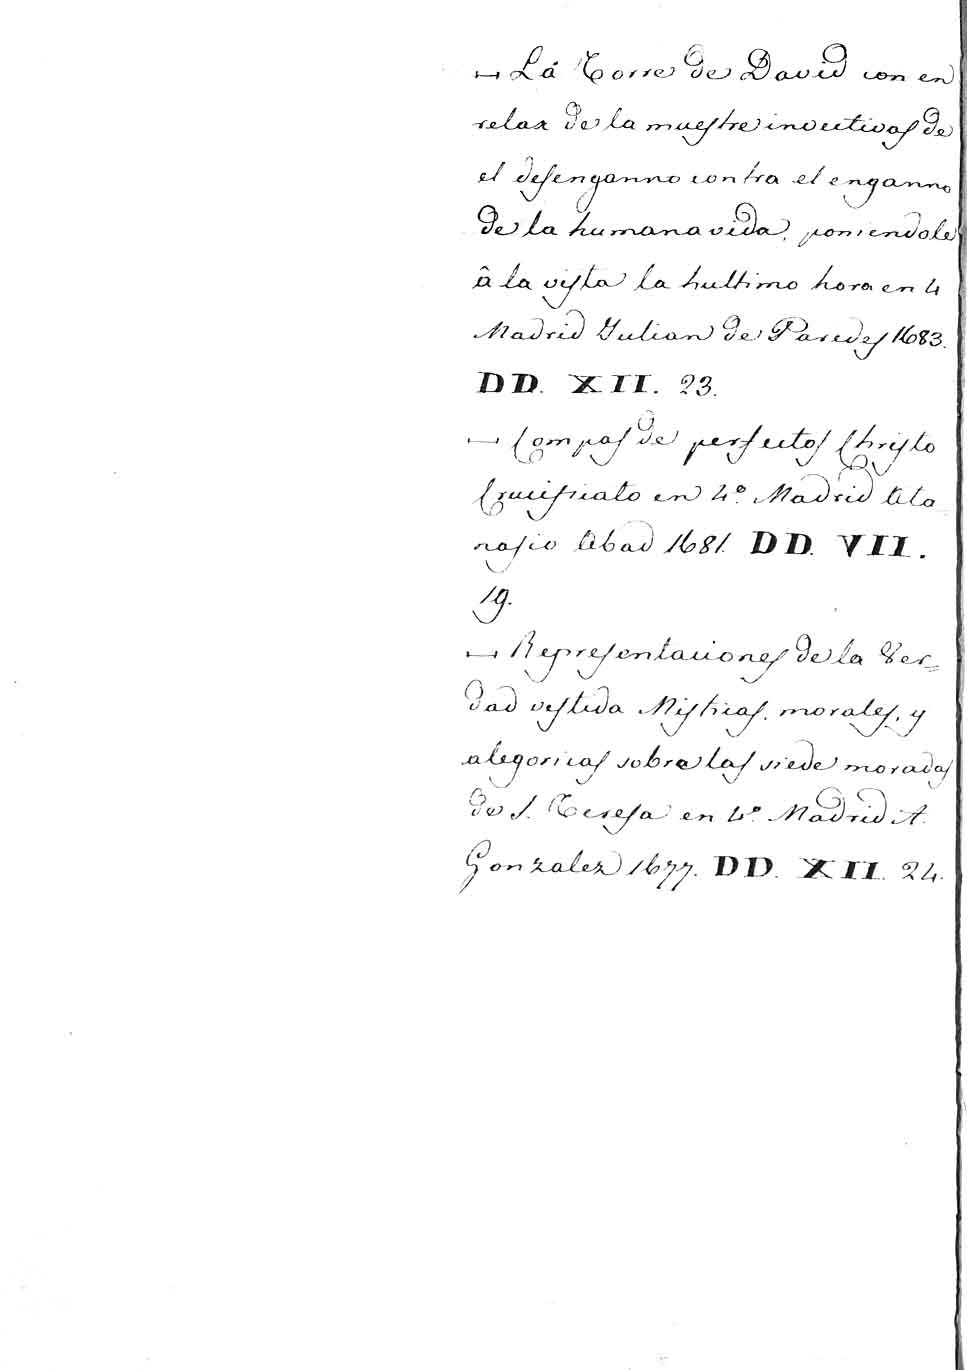 — Lá Torre de David con en
relax de la muestre invectivas de
el desenganno contra el enganno
de la humana vida, poniendole
â la vista la hultimo hora en 4
Madrid Julian de Paredes 1683.
DD. XII. 23.
— Compas de perfectos Christo
Crucificato en 4º. Madrid Ata
nasio Abad 1681. DD. VII.
19.
— Representaciones de la Ver=
dad vestida Misticas, morales, y
alegoricas sobre las siede moradas
de S. Teresa en 4º. Madrid A.
Gonzalez 1677. DD. XII. 24.